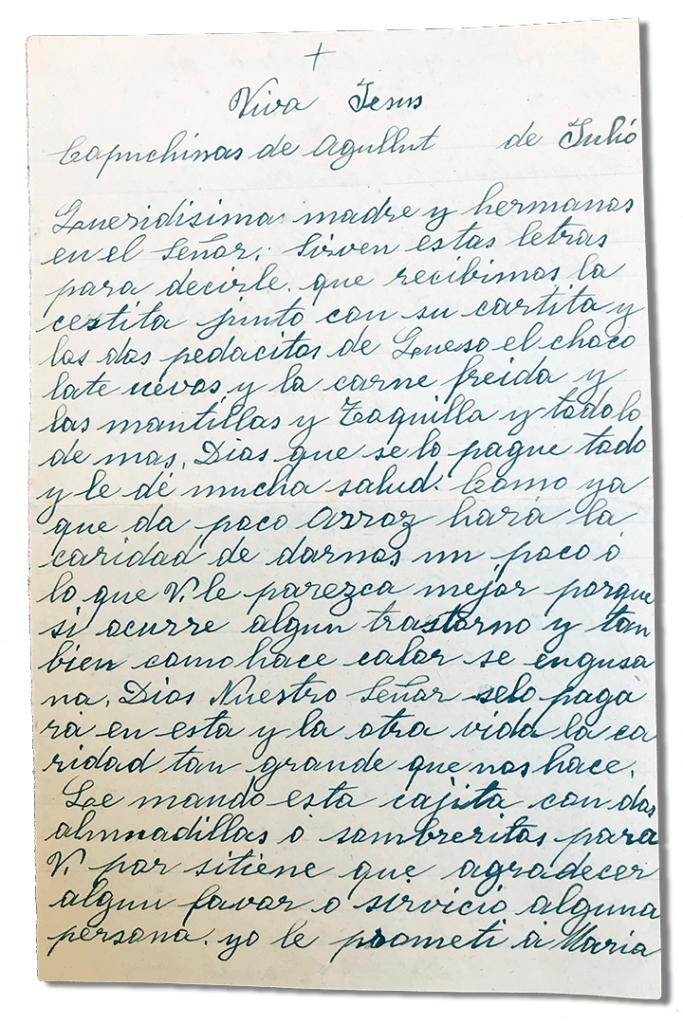 +
Viva Jesus
Capuchinas de Agullut de Julio
Queridisima madre y hermanas
en el Señor: Sirven estas letras
para decirle. que recibimos la
cestita junto con su cartita y
los dos pedacitos de Queso el choco
late uevos y la carne freida y
las mantillas y Toquilla y todo lo
de mas, Dios que se lo pague todo
y le dé mucha salud. Como ya
que da poco Arroz hará la
caridad de darnos un poco ó
lo que V. le parezca mejor porque
si ocurre algun trastorno y tan
bien como hace calor se engusa
na, Dios Nuestro Señor selo paga
rá en esta y la otra vida la ca
ridad tan grande que nos hace.
Le mando esta cajita con dos
almuadillas ó sombreritos para
V. por sitiene que agradecer
algun favor o sirvicio alguna
persona. yo le prometi á Maria